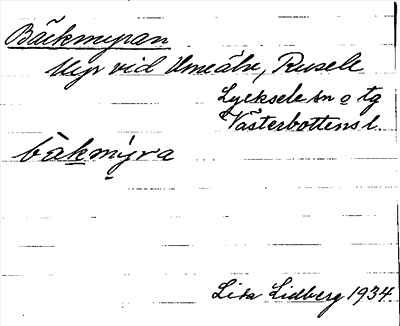 Bäckmyran
Myr vid Umeälv, Rusele
Lycksele sn o tg
Västerbottens l.
bäkmýra
Lisa Lidberg 1934